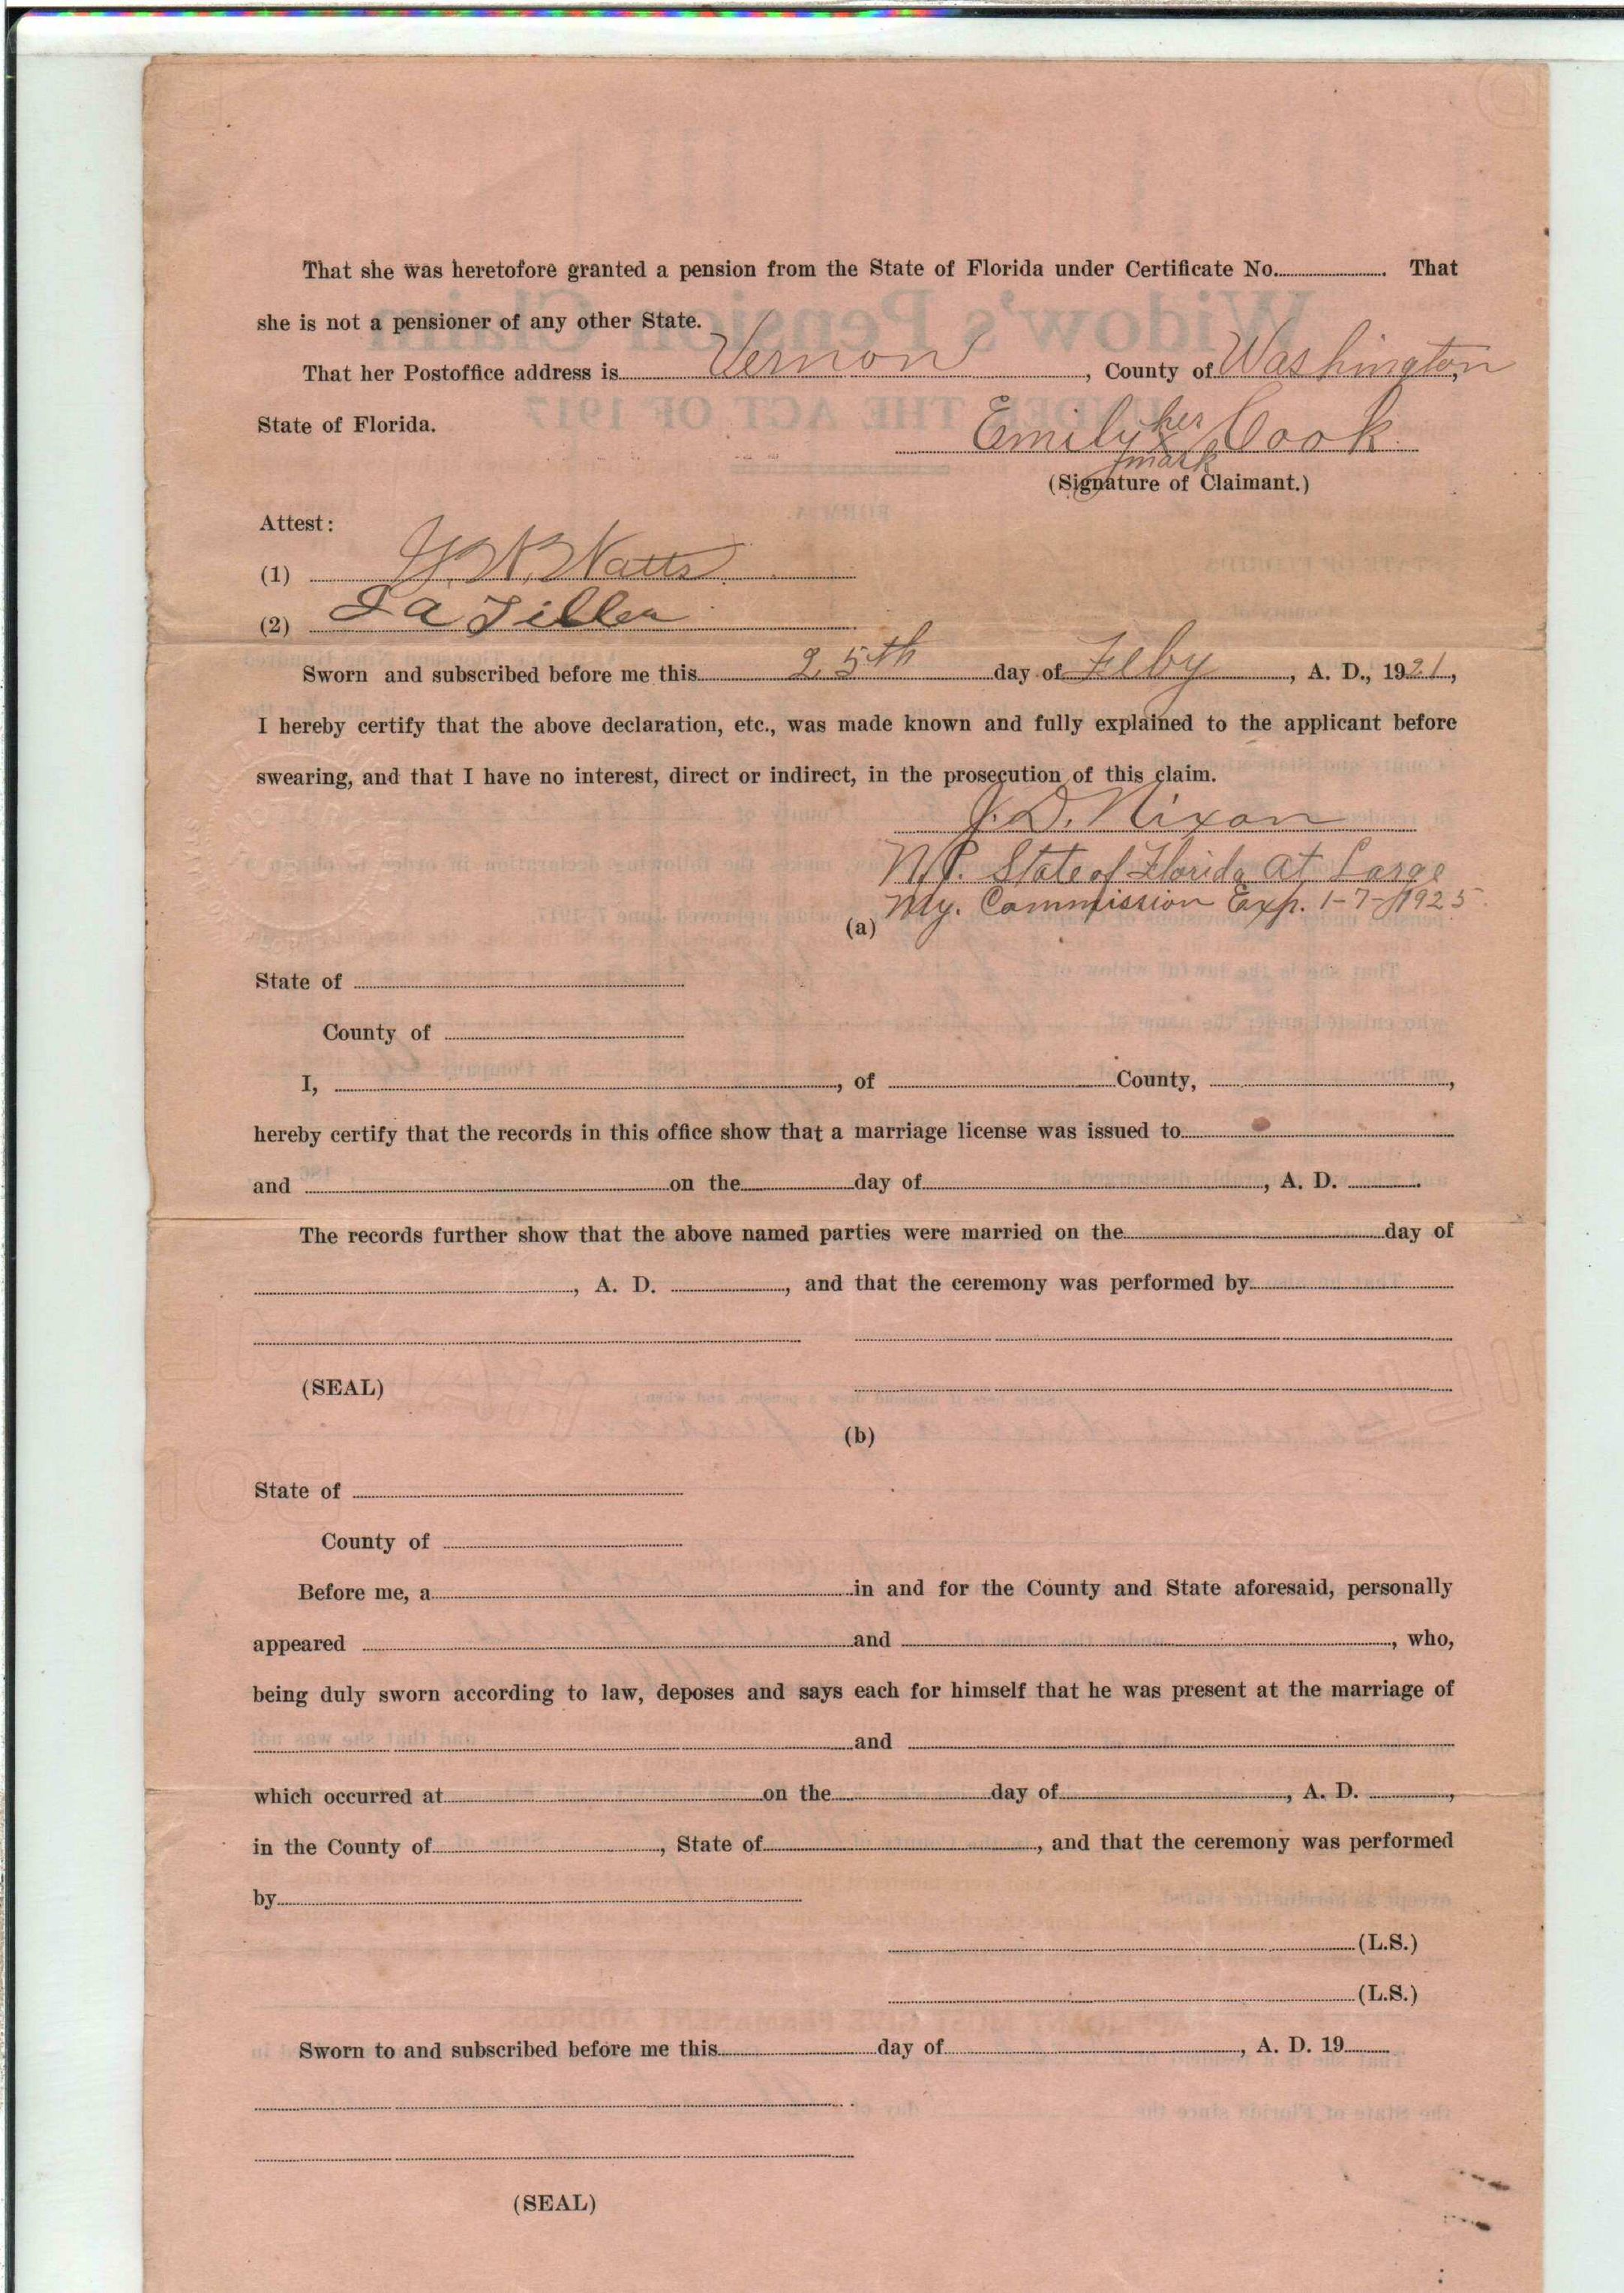 That she was heretofore granted a pension from the State of Florida under Certificate No. . That
she is not a pensioner of any other State.
That her Postoffice address is Vernon, County of Washington,
State of Florida.
Emily her Cook
x mark
(Signature of Claimant.)
Attest:
(1) Watts
(2)
Sworn and subscribed before me this 25th day of Feby, A. D., 1921,
I hereby certify that the above declaration, etc., was made known and fully explained to the applicant before
swearing, and that I have no interest, direct or indirect, in the prosecution of this claim.
J. D. Nixon
N.P. State of Florida at Large
My. Commission Exp. 1-7-1925
(a)
State of
County of
I, , of County, ,
hereby certify that the records in this office show that a marriage license was issued to
and on the day of , A. D. .
The records further show that the above named parties were married on the day of
, A. D. , and that the ceremony was performed by
(SEAL)
(b)
State of
County of
Before me, a in and for the County and State aforesaid, personally
appeared and , who,
being duly sworn according to law, deposes and says each for himself that he was present at the marriage of
and
which occurred at on the day of , A. D. ,
in the County of , State of , and that the ceremony was performed
by
(L.S.)
(L.S.)
Sworn to and subscribed before me this day of , A. D. 19
(SEAL)